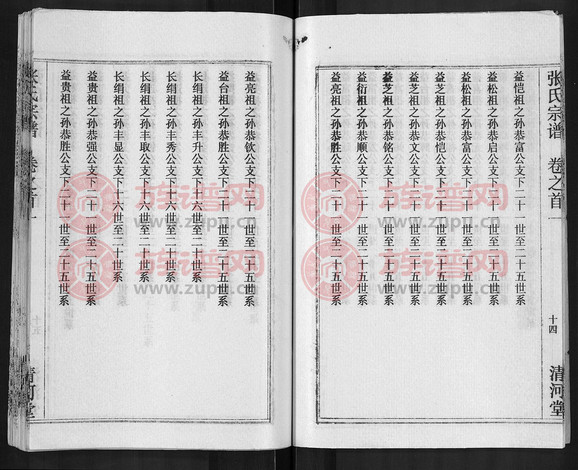 张氏宗谱 卷之首一
十四
清河堂
益恺祖之孙恭富公支下二十一世至二十五世系
益松祖之孙恭启公支下二十一世至二十五世系
益松祖之孙恭富公支下二十一世至二十五世系
益芝祖之孙恭恺公支下二十一世至二十五世系
益芝祖之孙恭文公支下二十一世至二十五世系
益芝祖之孙恭铭公支下二十一世至二十五世系
益衍祖之孙恭顺公支下二十一世至二十五世系
益亮祖之孙恭胜公支下二十一世至二十五世系
益亮祖之孙恭钦公支下二十一世至二十五世系
益台祖之孙恭胜公支下二十一世至二十五世系
长绢祖之孙丰升公支下十六世至二十世系
长绢祖之孙丰秀公支下十六世至二十世系
长绢祖之孙丰取公支下十六世至二十世系
长绢祖之孙丰显公支下十六世至二十世系
益贵祖之孙恭强公支下二十一世至二十五世系
益贵祖之孙恭胜公支下二十一世至二十五世系
张氏宗谱 卷之首一
十五
清河堂
族谱网
www.zupu.cn
族谱网
www.zupu.cn
族谱网
www.zupu.cn
族谱网
www.zupu.cn